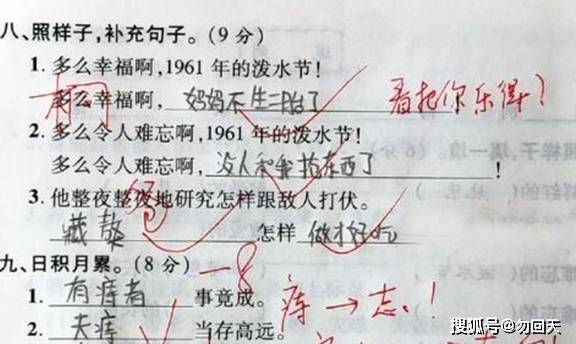 八、照样子，补充句子。（9分）
1. 多么幸福啊，1961年的泼水节！
多么幸福啊，妈妈不生二胎了 看把你乐得？
桐
2. 多么令人难忘啊，1961年的泼水节！
多么令人难忘啊，没人和我抢东西了！
3. 他整夜整夜地研究怎样跟敌人打伏。
藏獒 怎样 做才好吃
九、日积月累。（8分） -8
1. 有痔者 事竟成。 痔→志！
2. 夫痔 当存高远。
搜狐号@勿回天